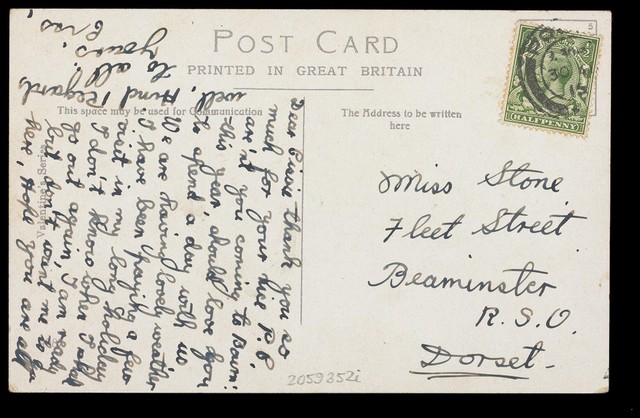 POST CARD
PRINTED IN GREAT BRITAIN
This space may be used for Communication
The Address to be written
here
Valentine's Series
HALFPENNY
5
Dear thank you so
much for your nice P.C
are n't you coming to Bourn:
this year, should love you
to spend a day with us
We are having lovely weather
I have been paying a few
visit in my long holiday
I don't know when I shall
go out again, I am ready
but don't want me to
here, Hope you are all
well, Kind Regards
to all.
yours.
Miss Stone
Fleet Street
Beaminster
R.S.O.
Dorset.
2059352i